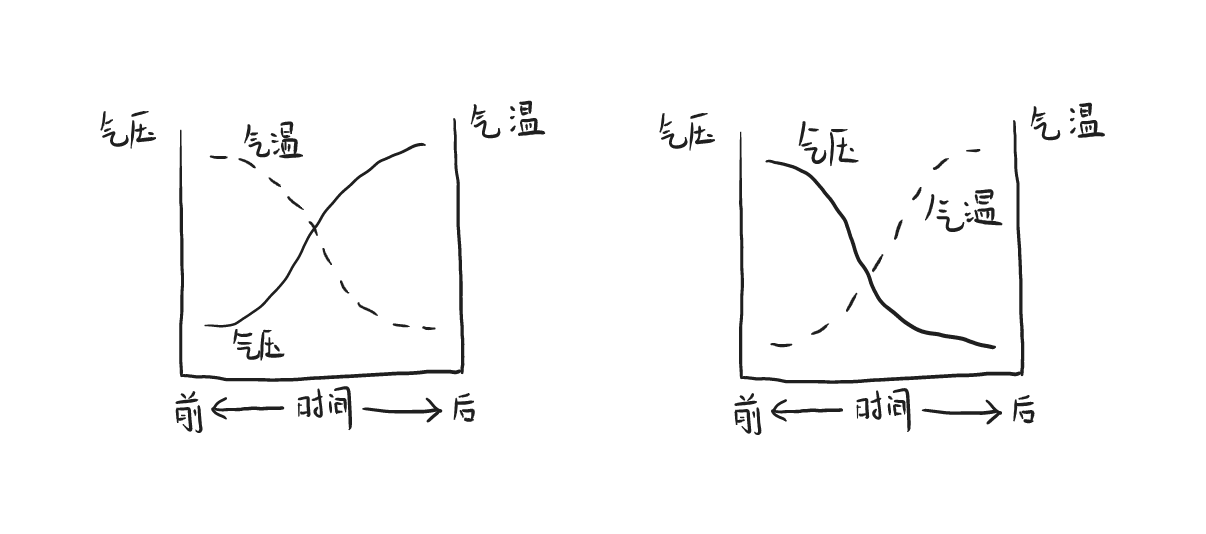 气压
气温
气温
气压
前 时间 后
气压
气压
气温
气温
前 时间 后